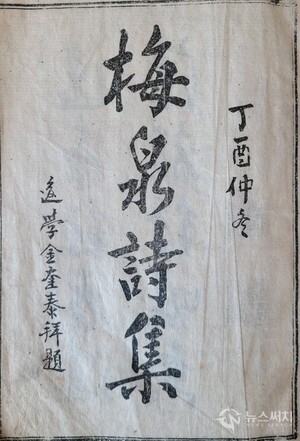 丁酉仲冬
梅泉詩集
後学金奎泰拜題
뉴스써치